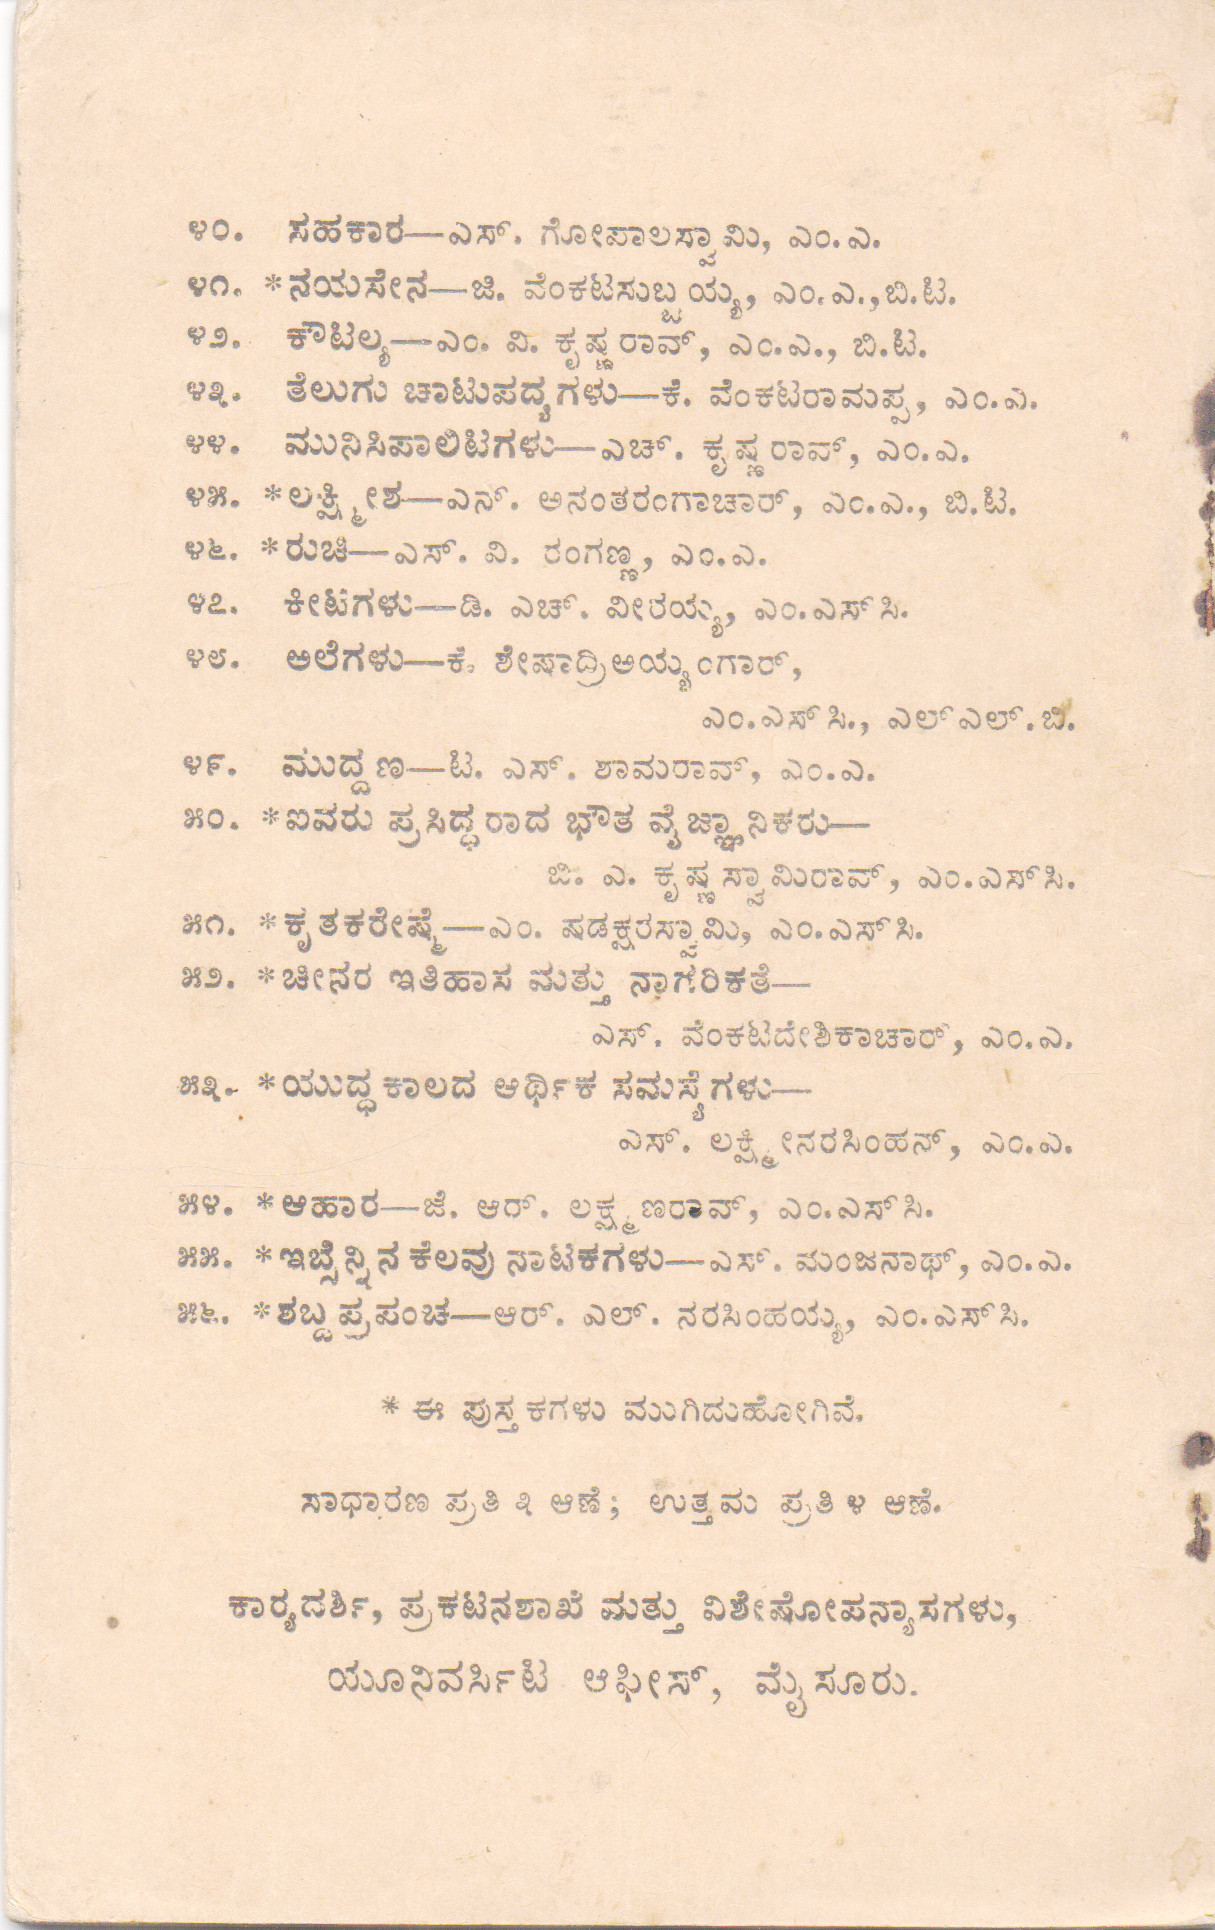 ೪೦. ಸಹಕಾರ—ಎಸ್. ಗೋಪಾಲಸ್ವಾಮಿ, ಎಂ.ಎ.
೪೧. *ನಯಸೇನ—ಜಿ. ವೆಂಕಟಸುಬ್ಬಯ್ಯ, ಎಂ.ಎ.,ಬಿ.ಟಿ.
೪೨. ಕೌಟಿಲ್ಯ—ಎಂ. ವಿ. ಕೃಷ್ಣರಾವ್, ಎಂ.ಎ., ಬಿ.ಟಿ.
೪೩. ತೆಲುಗು ಚಾಟುಪದ್ಯಗಳು—ಕೆ. ವೆಂಕಟರಾಮಪ್ಪ, ಎಂ.ಎ.
೪೪. ಮುನಿಸಿಪಾಲಿಟಿಗಳು—ಎಚ್. ಕೃಷ್ಣರಾವ್, ಎಂ.ಎ.
೪೫. *ಲಕ್ಷ್ಮೀಶ—ಎನ್. ಅನಂತರಂಗಾಚಾರ್, ಎಂ.ಎ., ಬಿ.ಟಿ.
೪೬. *ರುಚಿ—ಎಸ್. ವಿ. ರಂಗಣ್ಣ, ಎಂ.ಎ.
೪೭. ಕೀಟಗಳು—ಡಿ. ಎಚ್. ವೀರಯ್ಯ, ಎಂ.ಎಸ್‌ಸಿ.
೪೮. ಅಲೆಗಳು—ಕೆ. ಶೇಷಾದ್ರಿಅಯ್ಯಂಗಾರ್,
ಎಂ.ಎಸ್‌ಸಿ., ಎಲ್‌ಎಲ್.ಬಿ.
೪೯. ಮುದ್ದಣ—ಟಿ. ಎಸ್. ಶಾಮರಾವ್, ಎಂ.ಎ.
೫೦. *ಐವರು ಪ್ರಸಿದ್ಧರಾದ ಭೌತ ವೈಜ್ಞಾನಿಕರು—
ಜಿ. ಎ. ಕೃಷ್ಣಸ್ವಾಮಿರಾವ್, ಎಂ.ಎಸ್‌ಸಿ.
೫೧. *ಕೃತಕರೇಷ್ಮೆ—ಎಂ. ಷಡಕ್ಷರಸ್ವಾಮಿ, ಎಂ.ಎಸ್‌ಸಿ.
೫೨. *ಚೀನರ ಇತಿಹಾಸ ಮತ್ತು ನಾಗರಿಕತೆ—
ಎಸ್. ವೆಂಕಟದೇಶಿಕಾಚಾರ್, ಎಂ.ಎ.
೫೩. *ಯುದ್ಧಕಾಲದ ಆರ್ಥಿಕ ಸಮಸ್ಯೆಗಳು—
ಎಸ್. ಲಕ್ಷ್ಮೀನರಸಿಂಹನ್, ಎಂ.ಎ.
೫೪. *ಆಹಾರ—ಜೆ. ಆರ್. ಲಕ್ಷ್ಮಣರಾವ್, ಎಂ.ಎಸ್‌ಸಿ.
೫೫. *ಇಬ್ಸೆನ್ನಿನ ಕೆಲವು ನಾಟಕಗಳು—ಎಸ್. ಮಂಜನಾಥ್, ಎಂ.ಎ.
೫೬. *ಶಬ್ದಪ್ರಪಂಚ—ಆರ್. ಎಲ್. ನರಸಿಂಹಯ್ಯ, ಎಂ.ಎಸ್‌ಸಿ.
* ಈ ಪುಸ್ತಕಗಳು ಮುಗಿದುಹೋಗಿವೆ.
ಸಾಧಾರಣ ಪ್ರತಿ ೩ ಆಣೆ; ಉತ್ತಮ ಪ್ರತಿ ೪ ಆಣೆ.
ಕಾರ್‍ಯದರ್ಶಿ, ಪ್ರಕಟನಶಾಖೆ ಮತ್ತು ವಿಶೇಷೋಪನ್ಯಾಸಗಳು,
ಯೂನಿವರ್ಸಿಟಿ ಆಫೀಸ್, ಮೈಸೂರು.